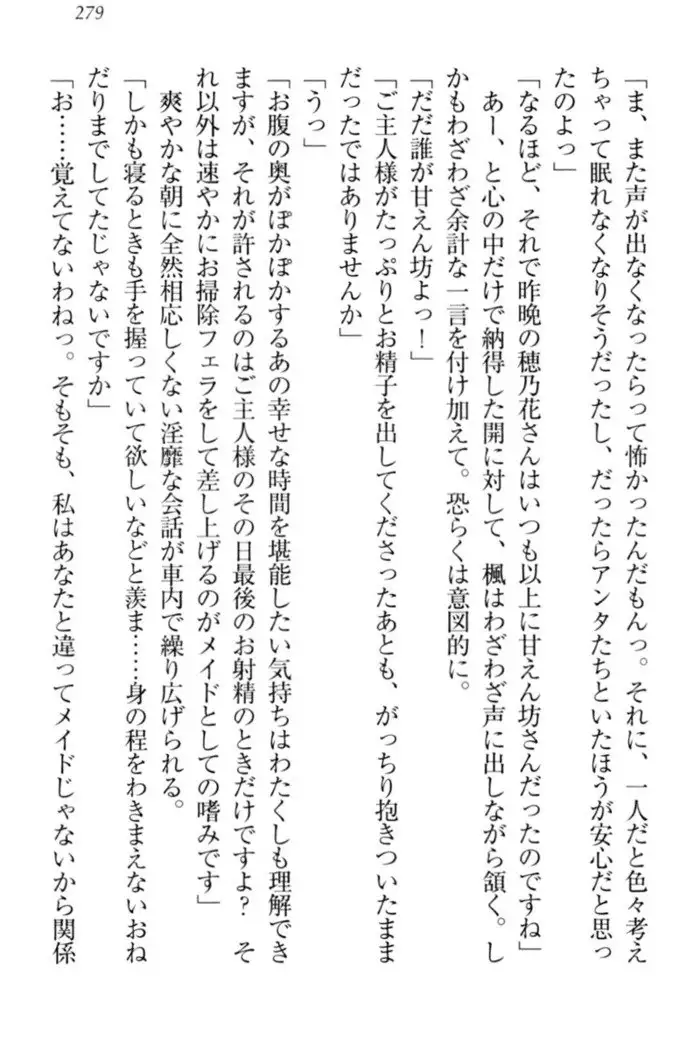 279
「ま、また声が出なくなったらって怖かったんだもんっ。それに、一人だと色々考え
ちゃって眠れなくなりそうだったし、だったらアンタたちといたほうが安心だと思っ
たのよっ」
「なるほど、それで昨晩の穂乃花さんはいつも以上に甘えん坊さんだったのですね」
あー、と心の中だけで納得した開に対して、楓はわざわざ声に出しながら頷く。し
かもわざわざ余計な一言を付け加えて。恐らくは意図的に。
「だだ誰が甘えん坊よっ！」
「ご主人様がたっぷりとお精子を出してくださったあとも、がっちり抱きついたまま
だったではありませんか」
「うっ」
「お腹の奥がぽかぽかするあの幸せな時間を堪能したい気持ちはわたくしも理解でき
ますが、それが許されるのはご主人様のその日最後のお射精のときだけですよ？　そ
れ以外は速やかにお掃除フェラをして差し上げるのがメイドとしての嗜みです」
爽やかな朝に全然相応しくない淫靡な会話が車内で繰り広げられる。
「しかも寝るときも手を握っていて欲しいなどと羨ま……身の程をわきまえないおね
だりまでしてたじゃないですか」
「お……覚えてないわねっ。そもそも、私はあなたと違ってメイドじゃないから関係